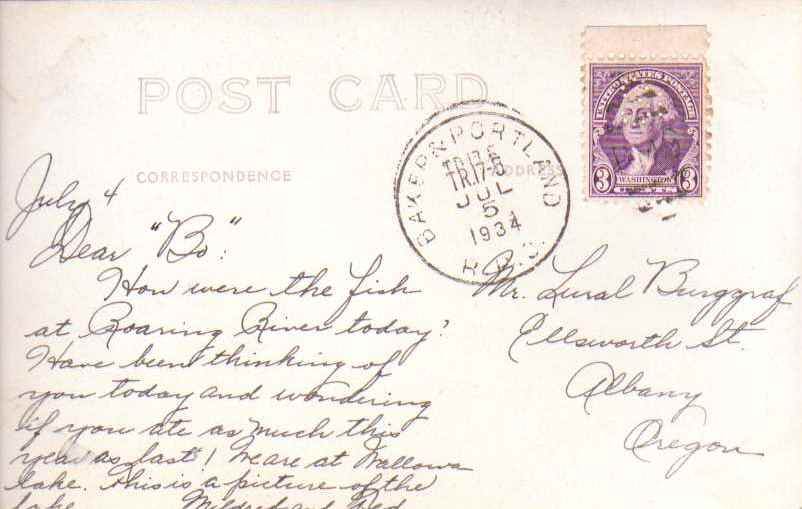 POST CARD
CORRESPONDENCE
ADDRESS
UNITED STATES POSTAGE
3 WASHINGTON 3
BAKER & PORTLAND
TR.17-5
JUL
5
1934
R.P.O.
July 4
Dear "Bo":
How were the fish
at Roaring River today?
Have been thinking of
you today and wondering
if you ate as much this
year as last! We are at Wallowa
Lake. This is a picture of the
lake. Mildred and
Mr. Lural Burggraf
Ellsworth St.
Albany
Oregon